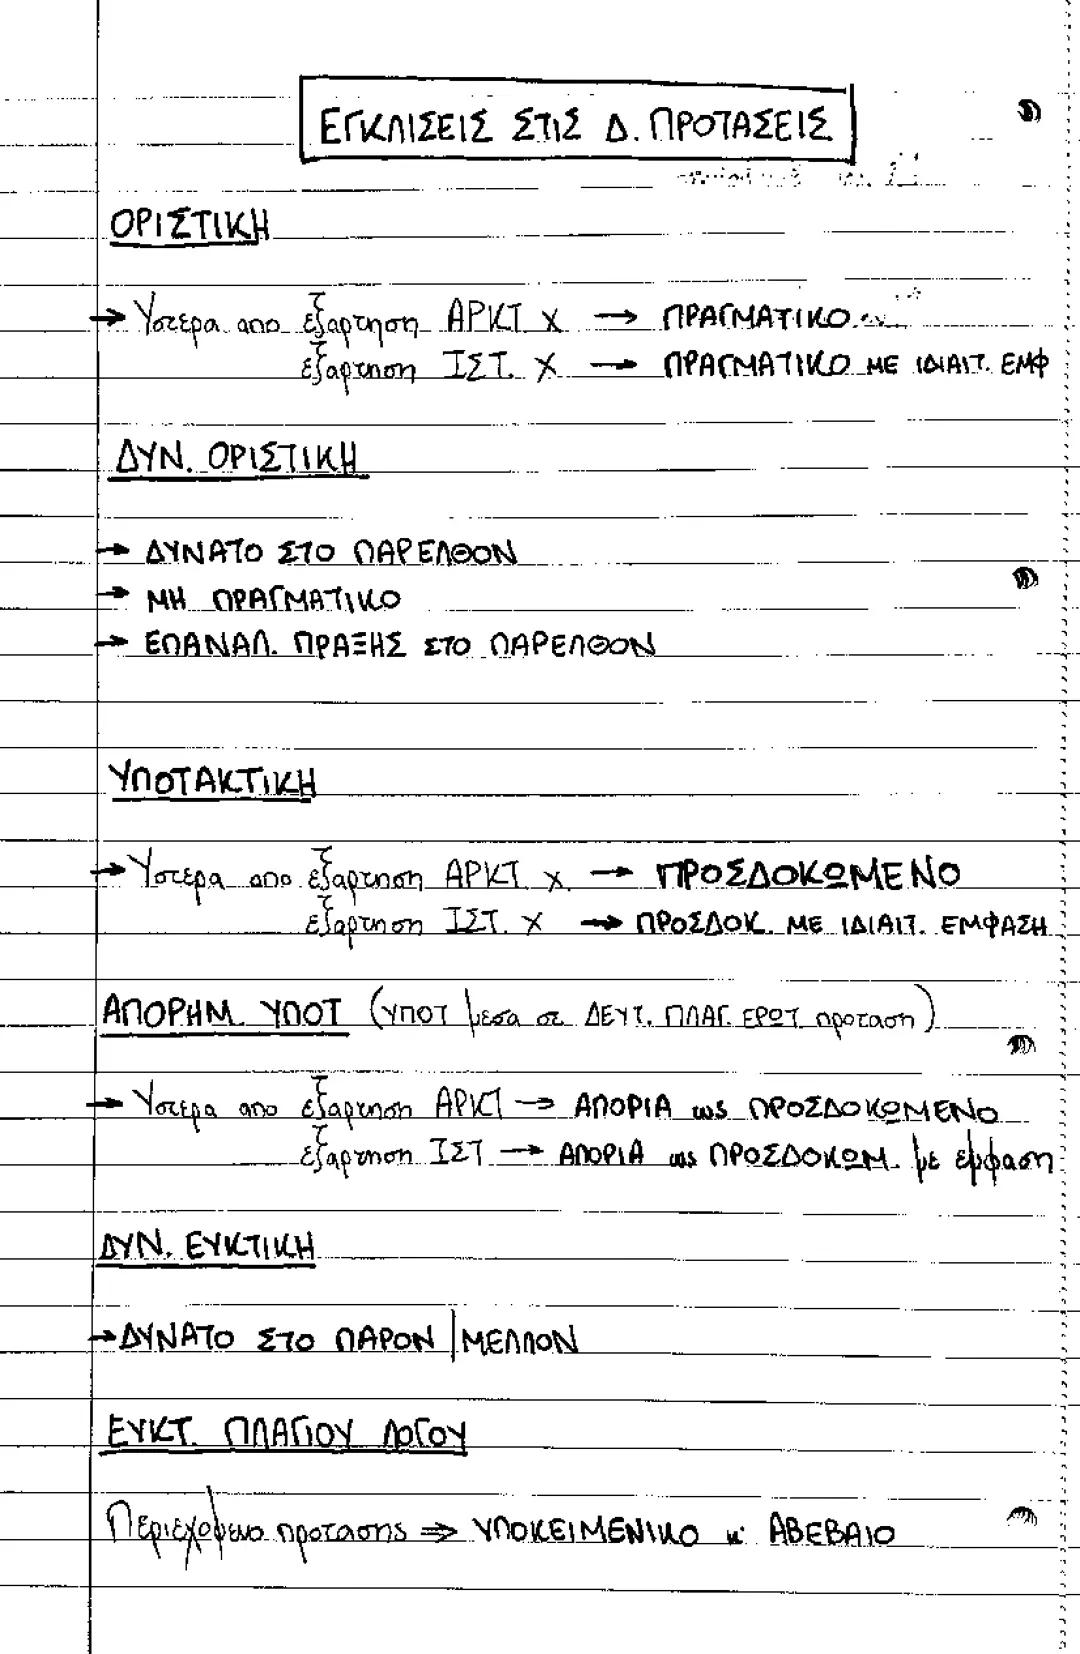 ΕΓΚΛΙΣΕΙΣ ΣΤΙΣ Δ. ΠΡΟΤΑΣΕΙΣ
ΟΡΙΣΤΙΚΗ
→ Υστερα απο εξαρτηση ΑΡΚΤ Χ → ΠΡΑΓΜΑΤΙΚΟ
εξαρτηση ΙΣΤ. Χ → ΠΡΑΓΜΑΤΙΚΟ ΜΕ ΙΔΙΑΙΤ. ΕΜΦ
ΔΥΝ. ΟΡΙΣΤΙΚΗ
→ ΔΥΝΑΤΟ ΣΤΟ ΠΑΡΕΛΘΟΝ
→ ΜΗ ΠΡΑΓΜΑΤΙΚΟ
→ ΕΠΑΝΑΛ. ΠΡΑΞΗΣ ΣΤΟ ΠΑΡΕΛΘΟΝ
ΥΠΟΤΑΚΤΙΚΗ
→ Υστερα απο εξαρτηση ΑΡΚΤ Χ. → ΠΡΟΣΔΟΚΩΜΕΝΟ
εξαρτηση ΙΣΤ. Χ → ΠΡΟΣΔΟΚ. ΜΕ ΙΔΙΑΙΤ. ΕΜΦΑΣΗ
ΑΠΟΡΗΜ. ΥΠΟΤ (ΥΠΟΤ μεσα σε ΔΕΥΤ. ΠΛΑΓ. ΕΡΩΤ προταση)
→ Υστερα απο εξαρτηση ΑΡΚΤ → ΑΠΟΡΙΑ ως ΠΡΟΣΔΟΚΩΜΕΝΟ
εξαρτηση ΙΣΤ. → ΑΠΟΡΙΑ ως ΠΡΟΣΔΟΚΩΜ. με εμφαση
ΔΥΝ. ΕΥΚΤΙΚΗ
→ ΔΥΝΑΤΟ ΣΤΟ ΠΑΡΟΝ | ΜΕΛΛΟΝ
ΕΥΚΤ. ΠΛΑΓΙΟΥ ΛΟΓΟΥ
Περιεχομενο προτασης ⇒ ΥΠΟΚΕΙΜΕΝΙΚΟ κ' ΑΒΕΒΑΙΟ